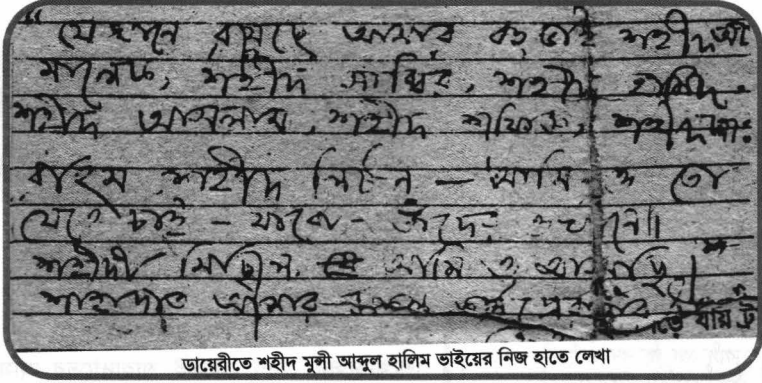 "যেখানে রয়েছে আমার বড় ভাই শহীদ
মালেক, শহীদ সাব্বির, শহীদ হামিদ,
শহীদ আসলাম, শহীদ শফিক, শহীদ আঃ
রহিম শহীদ লিটন – আমি ও তো
যেতে চাই – যাবো – ওদের ওখানে॥
শহীদী মিছিল আমি ও আসছি।
শাহাদাত আমার
ডায়েরীতে শহীদ মুন্সী আব্দুল হালিম ভাইয়ের নিজ হাতে লেখা